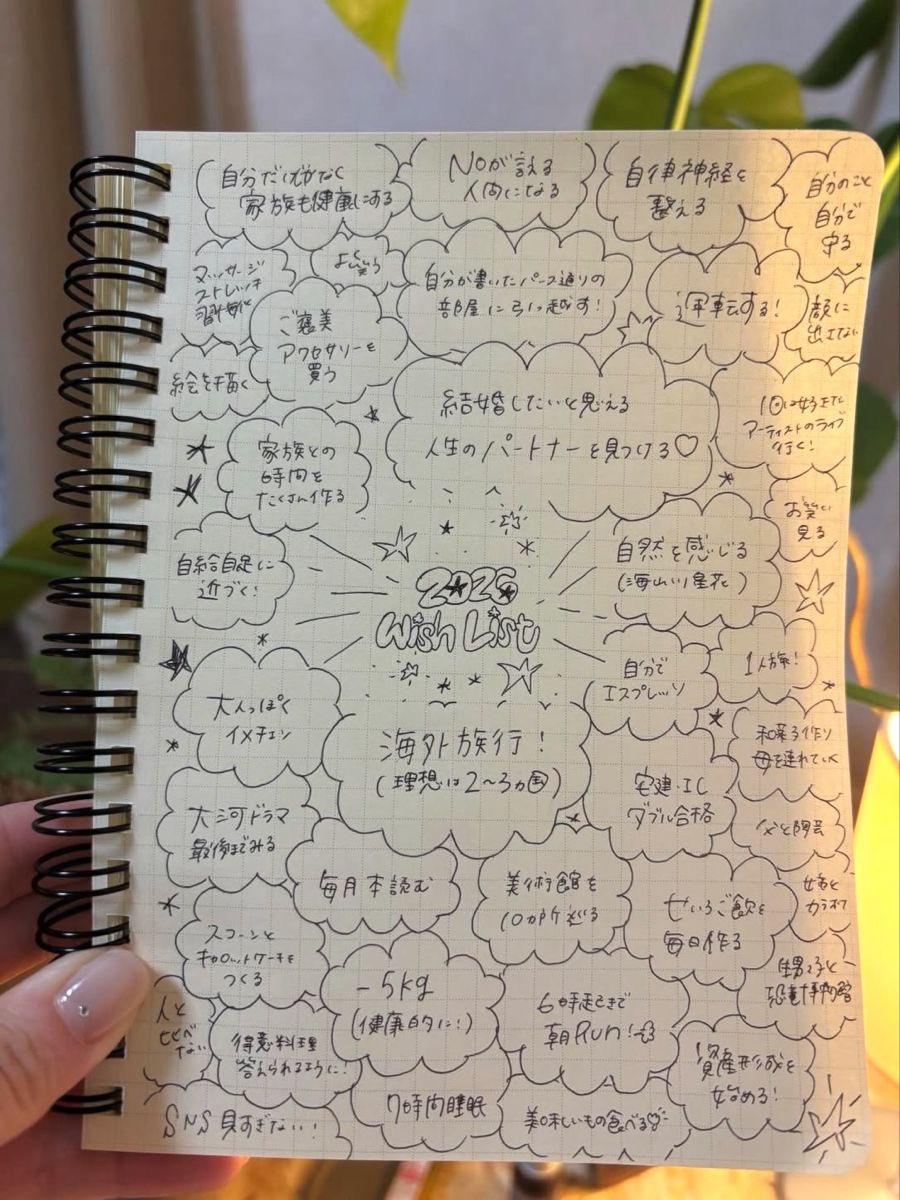 自分だけじゃなく
家族も健康にする
NOが言える
人間になる
自律神経を
整える
自分のこと
自分で
守る
マッサージ
ストレッチ
習慣化
よく笑う
自分が書いたパース通りの
部屋に引っ越す!
運転する!
顔に
出さない
ご褒美
アクセサリーを
買う
絵を描く
結婚したいと思える
人生のパートナーを見つける♡
1回は好きな
アーティストのライブ
行く!
家族との
時間を
たくさん作る
お笑い
見る
自給自足に
近づく!
自然を感じる
(海山川星花)
2026
Wish List
自分で
エスプレッソ
1人旅!
大人っぽく
イメチェン
海外旅行!
(理想は2〜3ヵ国)
和菓子作り
母を連れていく
宅建・IC
ダブル合格
大河ドラマ
最後までみる
父と陶芸
毎月本読む
美術館を
10カ所巡る
せいろご飯を
毎日作る
姉と
カラオケ
スコーンと
キャロットケーキを
つくる
-5kg
(健康的に!)
6時起きで
朝Run!
甥っ子と
恐竜博物館
人と
比べ
ない
得意料理
答えられるように!
資産形成を
始める!
SNS見すぎない!
7時間睡眠
美味しいもの食べる♡